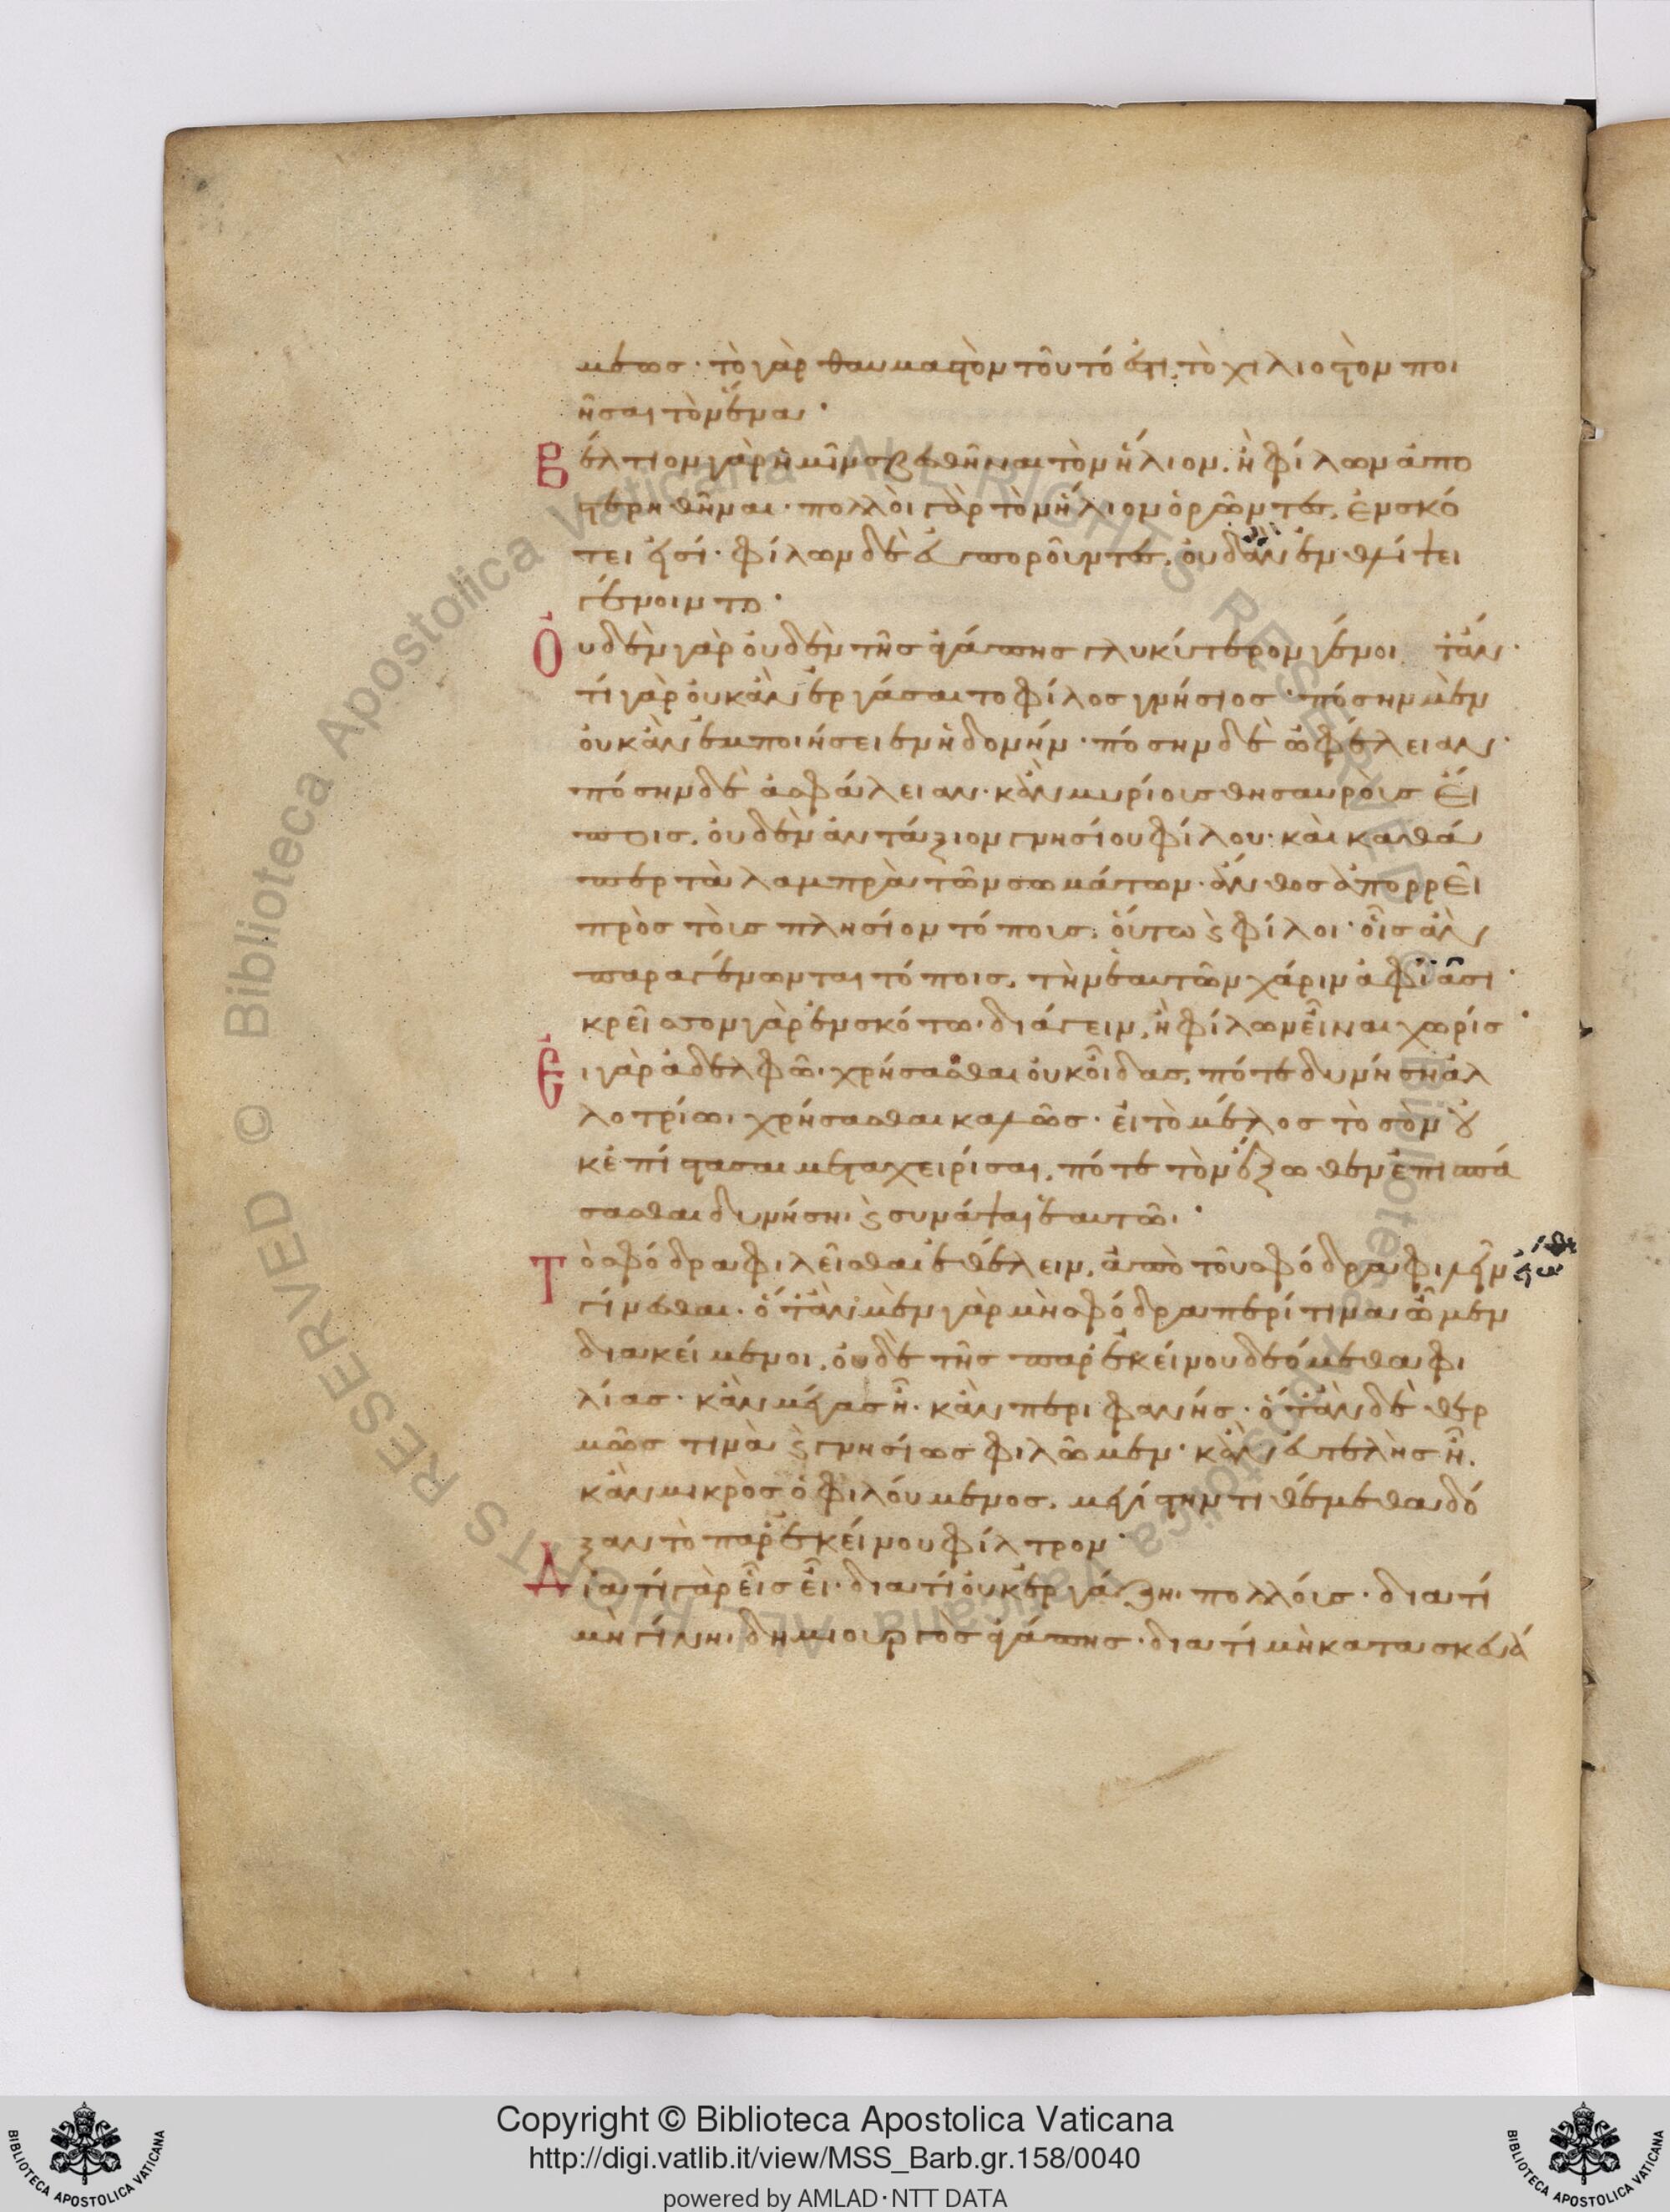 μενος· τὸ γὰρ θαυμαστὸν τοῦτό ἐστι, τὸ χιλιοστὸν ποι
ῆσαι τὸν ἕνα·
Βέλτιον γὰρ ἡμῖν σβεσθῆναι τὸν ἥλιον, ἢ φίλων ἀπο
στερηθῆναι· πολλοὶ γὰρ τὸν ἥλιον ὁρῶντες, ἐν σκό
τει εἰσί· φίλων δὲ εὐποροῦντες, οὐδ' ἂν ἐν θλίψει
γένοιντο·
Οὐδὲν γὰρ οὐδὲν τῆς ἀγάπης γλυκύτερον γένοιτ' ἄν·
τί γὰρ οὐκ ἂν ἐργάσαιτο φίλος γνήσιος· πόσην μὲν
οὐκ ἂν ἐμποιήσειεν ἡδονήν· πόσην δὲ ὠφέλειαν·
πόσην δὲ ἀσφάλειαν· κἂν μυρίους θησαυροὺς εἴ
ποις, οὐδὲν ἀντάξιον γνησίου φίλου· καὶ καθά
περ τὰ λαμπρὰ τῶν σωμάτων ἄνθος ἀπορρεῖ
πρὸς τοὺς πλησίον τόπους, οὕτω καὶ φίλοι· οἷς ἂν
παραγένωνται τόποις, τὴν ἑαυτῶν χάριν ἀφιᾶσι·
κρεῖσσον γὰρ ἐν σκότῳ διάγειν, ἢ φίλων εἶναι χωρίς·
Εἰ γὰρ ἀδελφῷ χρήσασθαι οὐκ οἶδας, πότε δυνήσῃ ἀλ
λοτρίῳ χρήσασθαι καλῶς· εἰ τὸ μέλος τὸ σὸν οὐ
κ ἐπίστασαι μεταχειρίσαι, πότε τὸν ἔξωθεν ἐπισπά
σασθαι δυνήσῃ καὶ συνάψαι ἑαυτῷ·
Τὸ σφόδρα φιλεῖσθαι ἐθέλειν, ἀπὸ τοῦ σφόδρα φιλεῖν
γίνεσθαι· ὅταν μὲν γὰρ μὴ σφόδρα περί τινα ὦμεν
διακείμενοι, οὐδὲ τῆς παρ' ἐκείνου δεόμεθα φι
λίας· κἂν μέγας ᾖ, κἂν περιφανής· ὅταν δὲ θερ
μῶς τινὰ καὶ γνησίως φιλῶμεν· κἂν εὐτελὴς ᾖ,
κἂν μικρὸς ὁ φιλούμενος, μεγίστην τιθέμεθα δό
ξαν τὸ παρ' ἐκείνου φίλτρον·
Διατί γὰρ εἷς εἶ· διατί οὐκ ἐργάζῃ πολλούς· διατί
μὴ γίνῃ δημιουργὸς ἀγάπης· διατί μὴ κατασκευά
© Biblioteca Apostolica Vaticana ALL RIGHTS RESERVED
© Biblioteca Apostolica Vaticana ALL RIGHTS RESERVED
Copyright © Biblioteca Apostolica Vaticana
http://digi.vatlib.it/view/MSS_Barb.gr.158/0040
powered by AMLAD·NTT DATA
BIBLIOTECA APOSTOLICA VATICANA
BIBLIOTECA APOSTOLICA VATICANA